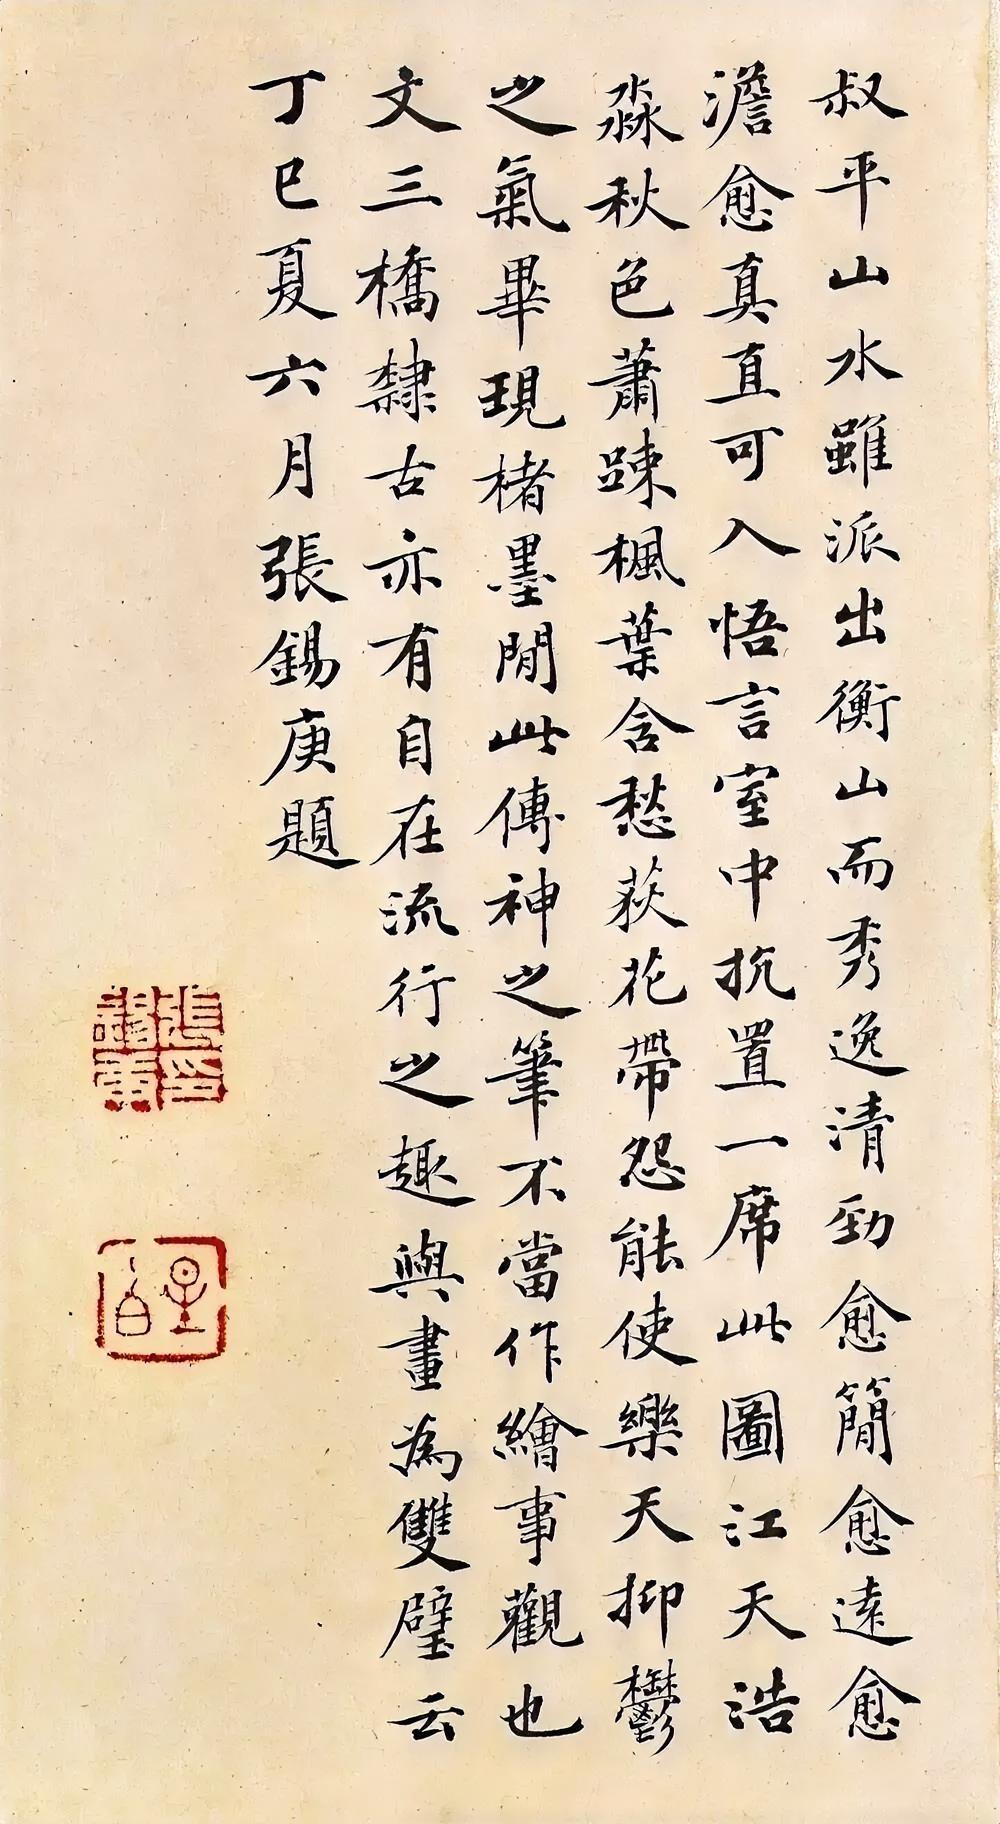 叔平山水雖派出衡山而秀逸清勁愈簡愈遠愈
澹愈真直可入悟言室中抗置一席此圖江天浩
淼秋色蕭踈楓葉含愁荻花帶怨能使樂天抑鬱
之氣畢現楮墨間此傳神之筆不當作繪事觀也
文三橋隸古亦有自在流行之趣與畫為雙璧云
丁巳夏六月張錫庚題
張印錫庚
星白